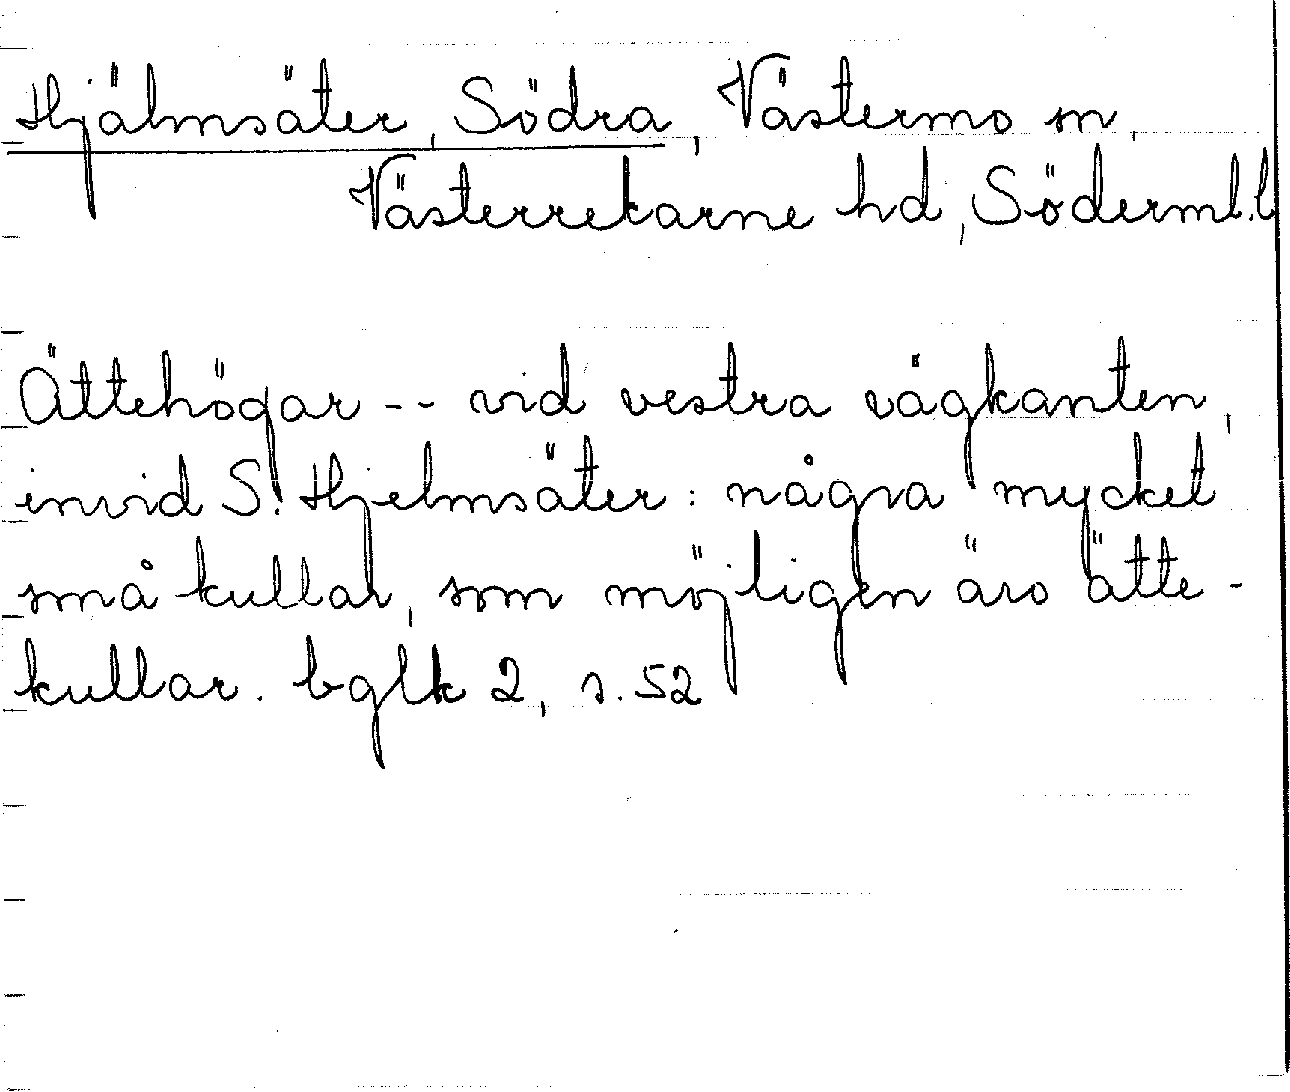 Hjälmsäter, Södra, Västermo sn,
Västerrekarne hd, Söderml. l
Ättehögar -- vid vestra vägkanten,
invid S. Hjelmsäter: några mycket
små kullar, som möjligen äro ätte-
kullar. bglk 2, s. 52